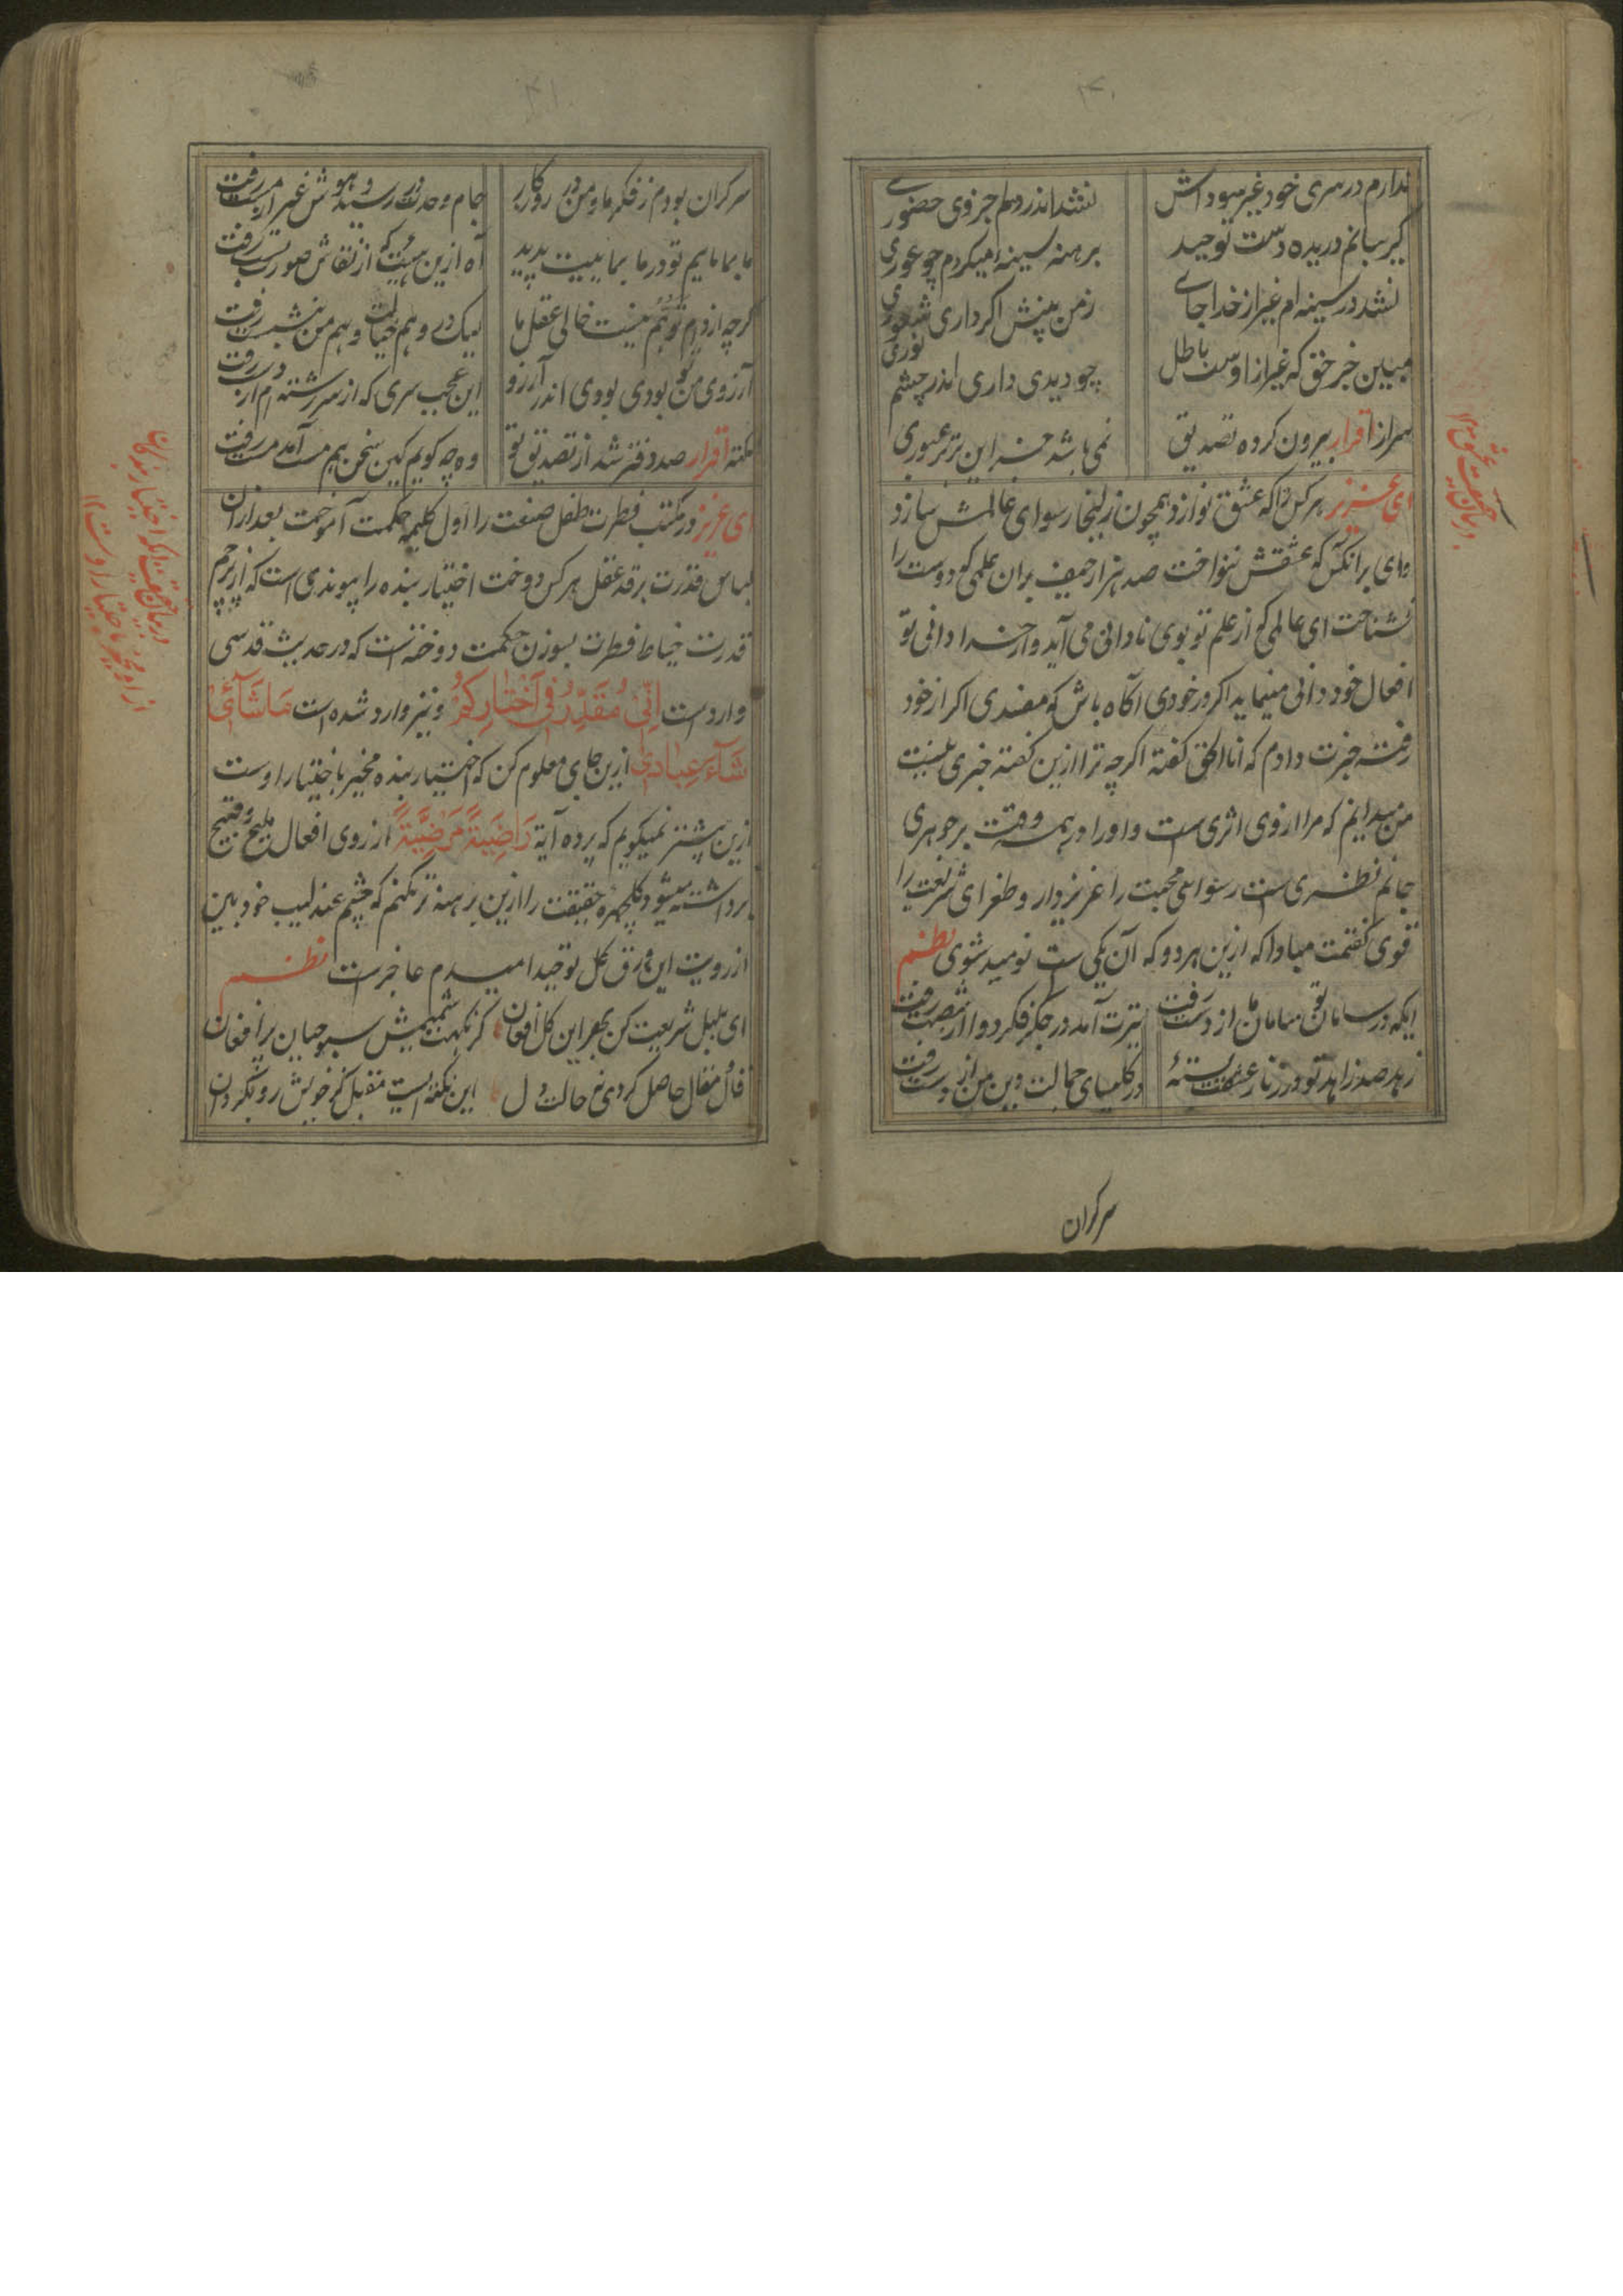 ندارم در سری خود غیر سوداش
نشد اندر دلم جز وی حضوری
گریبانم دریده دست توحید
برهنه سینه میکردم چو عوری
نشد در سینه ام غیر از خدا جای
زمن بینش اگر داری شعوری
مبین خبر حق که غیر از اوست باطل
چو دیدی داری اندر چشم نوری
سر از اقرار بیرون کرده تصدیق
نمی باشد ازین برتر عبوری
ای عزیز هر کس را که عشق نوازد همچون زلیخا رسوای عالمش سازد
وای بر آنکس که عشقش ننواخت صد هزار حیف بران علمی که دوست را
نشناخت ای عالمی که از علم تو بوی نادانی می آید و از خدا دانی تو
افعال خود دانی مینماید اگر در خودی آگاه باش که مفسدی اگر از خود
رفته خبرت دادم که انا الحق گفته اگرچه ترا ازین گفته خبری نیست
من میدانم که مرا از وی اثری ست و او را در همه وقت بر جوهری
جانم نظری ست رسوایی محبت را عزیز دار و طغرای شریعت را
قوی گفتمت مبادا که ازین هر دو که آن یکی ست نومید شوی نظم
ایکه در سامان تو سامان ما از دست رفت
تیرت آمد در جگر فکر دوا از شصت رفت
زهد صد زاهد تو در زنار عشقت بسته
در کلیسای جمالت دین من از دست رفت
سرگران
سرگران بودم ز فکر ما و من در روزگار
جام وحدت در رسید و هوش غیر از مست رفت
ما بما مائیم تو در ما بمایی پدید
آه ازین هیئت که از نقاش صورت بست رفت
گرچه از وهم توهم نیست خالی عقل ما
لیک در وهم خیالت وهم من رفت
آرزوی من تو بودی بودی اندر آرزو
این عجب سری که از سر رشته ام از دست رفت
نکته اقرار صد دفتر شد از تصدیق تو
وه چه گویم کین سخن هم مست آمد مست رفت
ای عزیز در مکتب فطرت طفل صنعت را اول کلمه حکمت آموخت بعد ازان
لباس قدرت بر قد عقل هر کس دوخت اختیار بنده را پیوندی است که از پرچم
قدرت خیاط فطرت بسوزن حکمت دوخته است که در حدیث قدسی
وارد است اِنّی مُقَدِّرٌ فی اَختیارِکُم و نیز وارد شده است مَا شَآئی
شَآءَ عِبادی ازین جای معلوم کن که اختیار بنده مخیر باختیار اوست
ازین بیشتر نمیگویم که پرده آیة رَاضِیَةً مَرْضِیَّةً از روی افعال ملیح و قبیح
برداشته میشود و گلچهره حقیقت را ازین برهنه تر نکنم که چشم عندلیب خود بین
از رویت این ورق گل توحید امیدم عاجز ست نظم
ای بلبل شریعت کن بهر این گل افغان
کز نکهت شمیمش سبوحیان پر افغان
فال مقال حاصل کردی ز حالت دل
این نکته ایست مقبل کز خویش رو بگردان